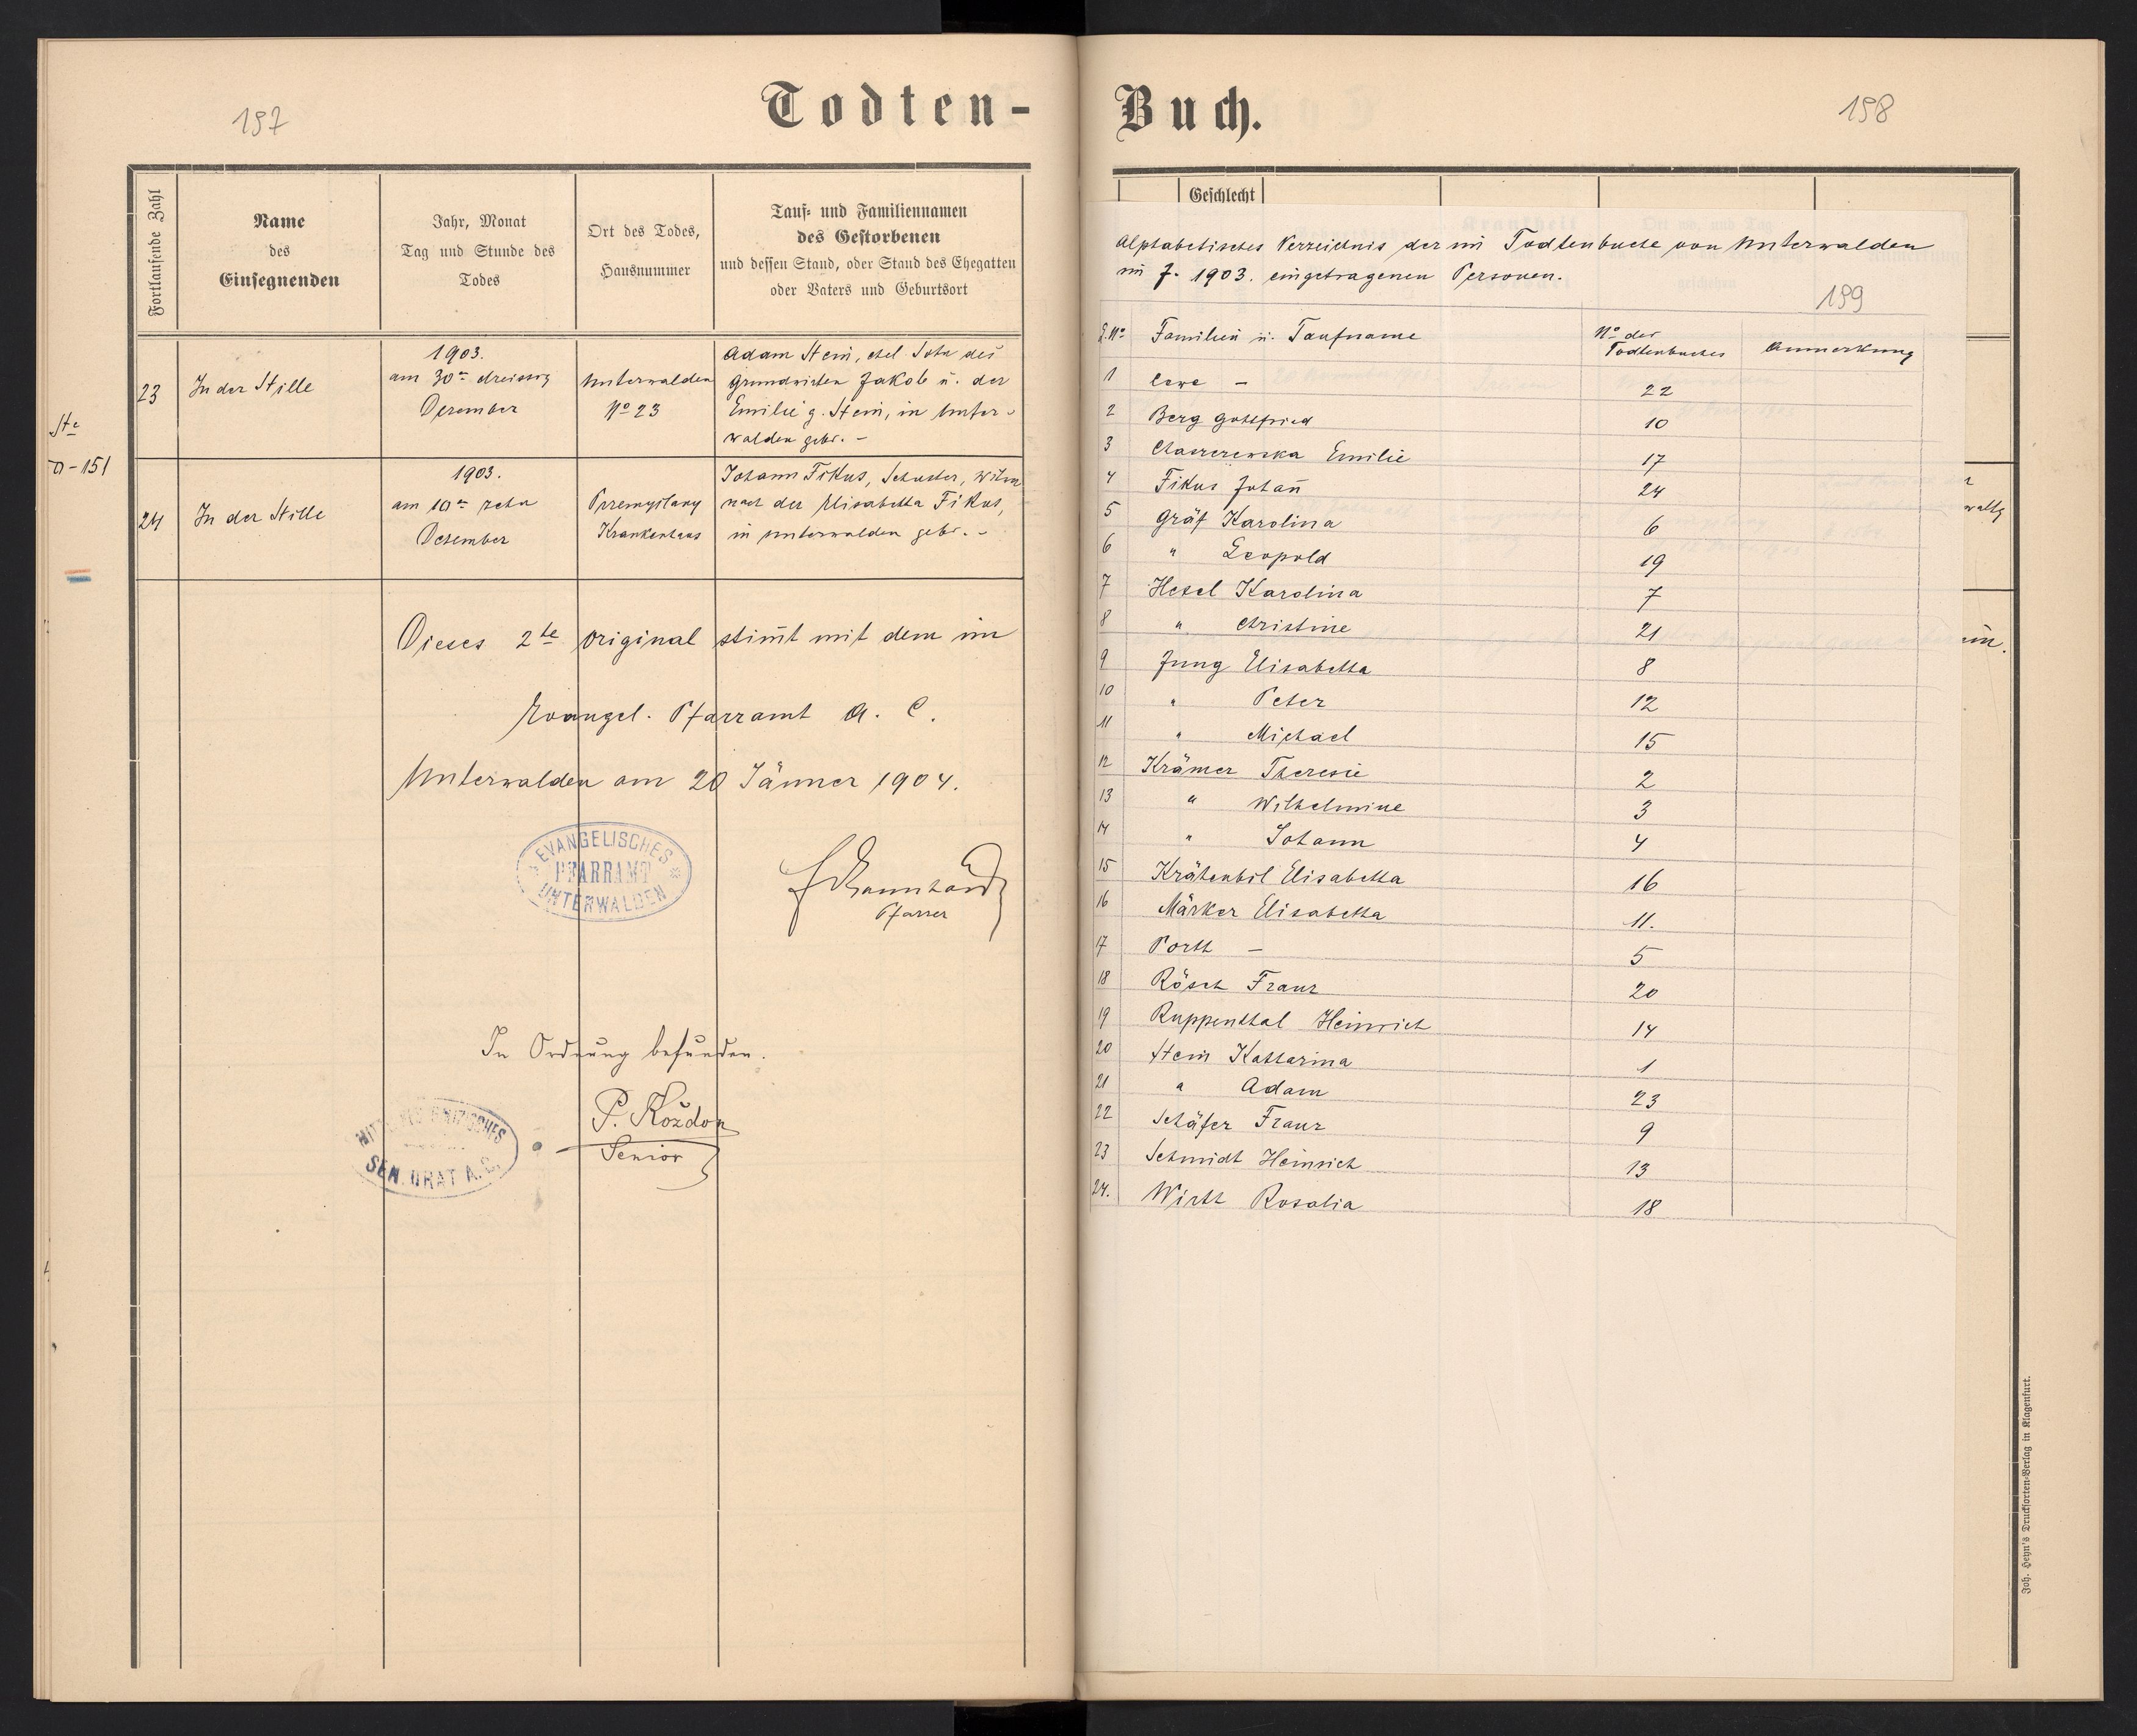 Todten-
157
Fortlaufende Zahl
Name
des
Einsegnenden
Jahr, Monat
Tag und Stunde des
Todes
Ort des Todes,
Hausnummer
Tauf- und Familiennamen
des Gestorbenen
und dessen Stand, oder Stand des Ehegatten
oder Vaters und Geburtsort
23
In der Stille
1903.
am 30ten dreissig
Dezember
Unterwalden
No 23
Adam Stein, ehel. Sohn des
Grundwirten Jakob u. der
Emilie g. Stein, in Unter-
walden gebr. -
24
In der Stille
1903.
am 10ten zehn
Dezember
Przemyślany
Krankenhaus
Johann Fikus, Schuster, Witwer
nach der Elisabetha Fikus,
in Unterwalden gebr. -
Dieses 2te Original stimt mit dem im
Evangel. Pfarramt A. C.
Unterwalden am 20 Jänner 1904.
EVANGELISCHES
PFARRAMT
UNTERWALDEN
Pfarrer
In Ordnung befunden.
P. Kożdon
Senior
SENIORAT A.C.
Buch.
158
Geschlecht
Alphabetisches Verzeichnis der im Todtenbuche von Unterwalden
im J. 1903. eingetragenen Personen.
159
L.No Familien u. Taufname No des Todtenbuches Anmerkung
1 - 22
2 Berg Gottfried 10
3 Emilie 17
4 Fikus Johañ 24
5 Gräf Karolina 6
6 " Leopold 19
7 Hesel Karolina 7
8 " Christine 21
9 Jung Elisabetha 8
10 " Peter 12
11 " Michael 15
12 Krämer Theresie 2
13 " Wilhelmine 3
14 " Johann 4
15 Krähenbil Elisabetha 16
16 Märker Elisabetha 11.
17 Porth - 5
18 Rösch Franz 20
19 Ruppenthal Heinrich 14
20 Stein Katharina 1
21 " Adam 23
22 Schäfer Franz 9
23 Schmidt Heinrich 13
24. Wirth Rosalia 18
Joh. Heyn's Drucksorten-Verlag in Klagenfurt.